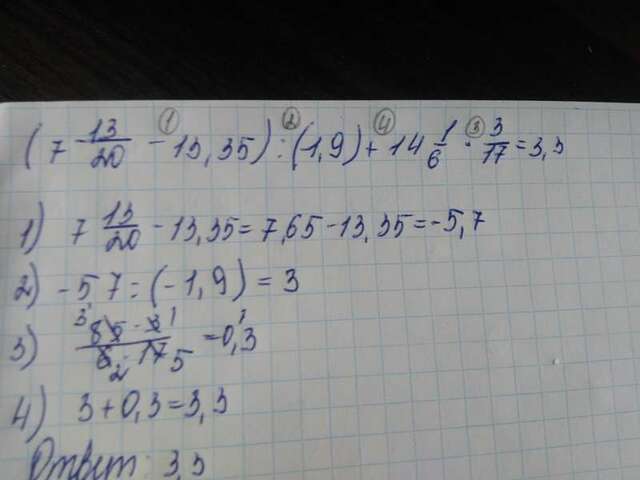 (7 13/20 - 13,35) : (1,9) + 14 1/6 · 3/17 = 3,3
1) 7 13/20 - 13,35 = 7,65 - 13,35 = -5,7
2) -5,7 : (-1,9) = 3
3) 85 · 3 / 6 · 17 = 0,3
4) 3 + 0,3 = 3,3
Ответ: 3,3